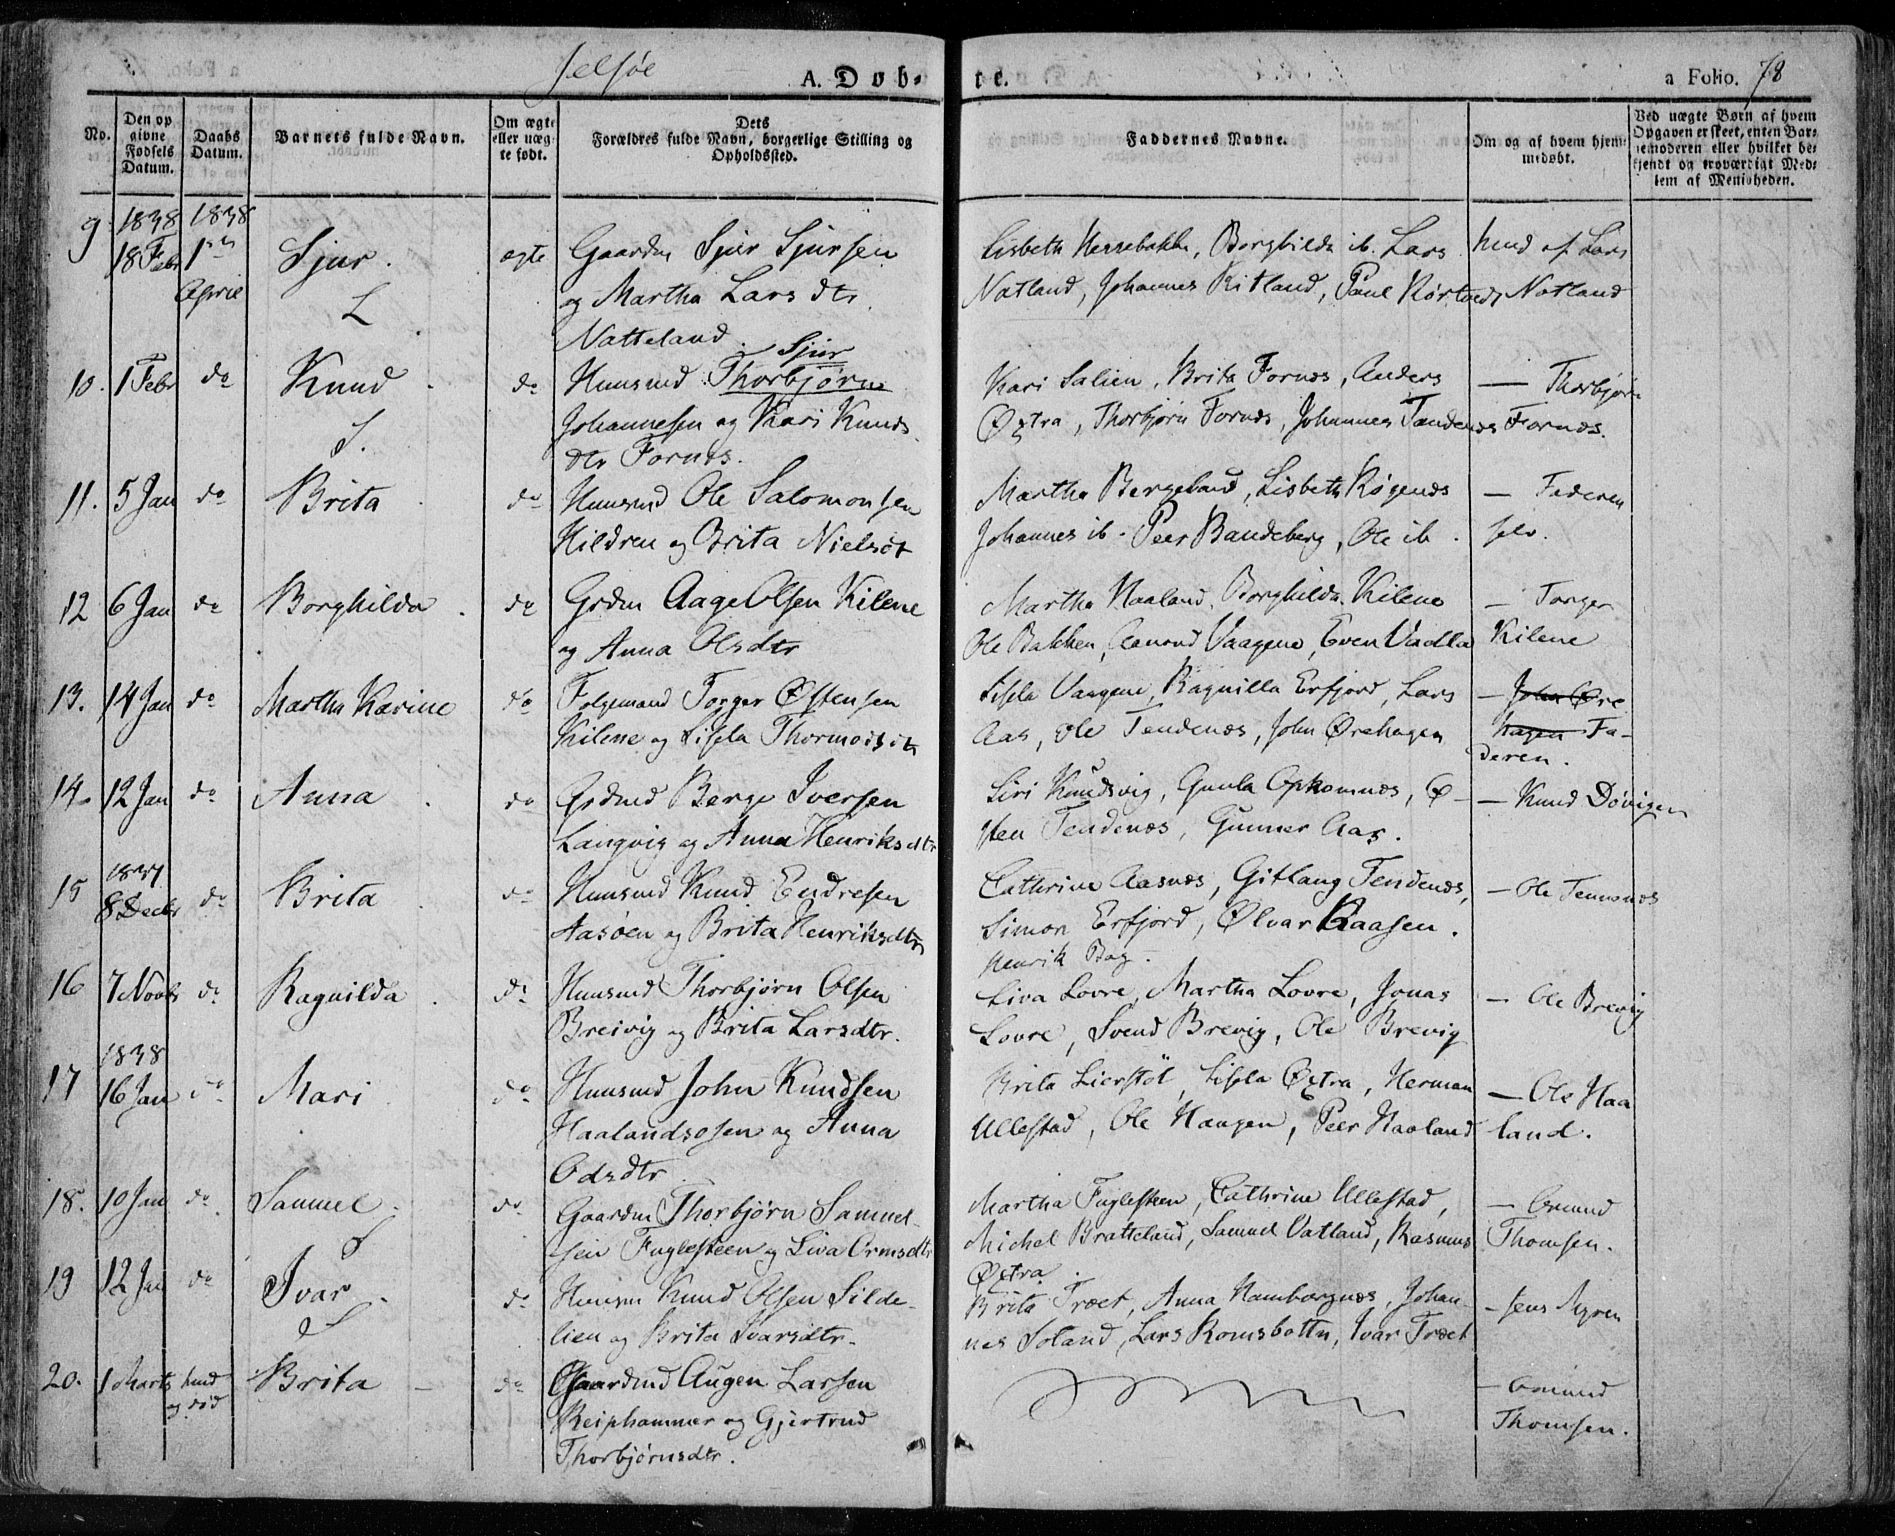 Jelsøe
A. Dob-
te.
a Folio. 78
No.
Den op
givne
Fødsels
Datum.
Daabs
Datum.
Barnets fulde Navn.
Om ægte
eller uæg-
te født.
Dets
Forældres fulde Navn, borgerlige Stilling og
Opholdssted.
Faddernes Navne.
Om og af hvem hjem-
medøbt.
Ved uægte Børn af hvem
Opgaven er skeet, enten Bar-
nemoderen eller hvilket be-
kjendt og troværdigt Med-
lem af Menigheden.
9 1838 18 Febr 1838 1 April Sjur. L ægte Gaardm Sjur Sjursen
og Martha Lars dtr
Natteland.
Lisbeth Hessebakke, Borghilda ib. Lars
Natland, Johannes Kitland, Paul
hmd af Lars
Natland
10. 1 Febr do Knud S. do Huusmd Thorbjørn Sjur
Johannesen og Kari Knuds
dtr Fornes.
Kari Salien, Brita Fornæs, Anders
Øxtra, Thorbjørn Fornæs, Johannes Tendenæs
— Thorbjørn
Fornæs.
11. 5 Jan do Brita do Huusmd Ole Salomonsen
Hildren og Brita Nielsdt
Martha Bergeland, Lisbeth Røgenæs
Johannes ib. Peer Bandeberg, Ole ib.
— Faderen
selv.
12 6 Jan do Borghilda. do Grdm Aage Olsen Kilene
og Anna Olsdtr
Martha Haaland, Borghilda Kilene
Ole Bakken, Aamond Vaagene, Even Vadla
— Torger
Kilene
13. 14 Jan do Martha Karine do Folgemand Torger Østensen
Kilene og Lisela Thormodsdtr
Lisela Vaagene, Ragnilla Erfjord, Lars
Aas, Ole Tendenæs, John Ørehagen
— John Øre
hagen Fa-
deren.
14. 12 Jan do Anna. do Grdmd Berge Iversen
Langvig og Anna Henriksdtr
Siri Knudsvig, Gunla Opkomnæs, Ø-
sten Tendenæs, Gunner Aas.
— Knud Døvigen
15 1837 8 Decbr do Brita. do Huusmd Knud Endresen
Aasøen og Brita Henriksdtr
Cathrine Aasnæs, Gitlaug Tendenæs,
Simon Erfjord, Ølvar Raasen.
Henrik Bag.
— Ole Tennenæs
16 7 Novbr do Ragnilda. do Huusmd Thorbjørn Olsen
Breivig og Brita Larsdtr.
Liva Lovre, Martha Lovre, Jonas
Lovre, Svend Brevig, Ole Brevig
— Ole Brevig
17 1838 16 Jan do Mari. do Huusmd John Knudsen
Haalandsosen og Anna
Odsdtr
Brita Lierstøl, Lisela Øxtra, Herman
Ullestad, Ole Haugen, Peer Haaland
— Ole Haa
land.
18. 10 Jan do Samuel. S do Gaardm Thorbjørn Samuel-
sen Fuglesteen og Liva Ormsdtr
Martha Fuglesteen, Cathrine Ullestad,
Michel Bratteland, Samuel Vatland, Rasmus
Øxtra.
— Omund
Thomsen.
19 12 Jan do Ivar. S do Huusm Knud Olsen Silde-
lien og Brita Ivarsdtr.
Brita Træet, Anna Hamborgnæs, Johan-
nes Soland, Lars Romsbottn, Ivar Træet
— Jens Myren
20. 1 Marts hmd
og død Brita — do Gaardmd Augen Larsen
Reiphammer og Gjertrud
Thorbjørnsdtr.
— Omund
Thomsen.